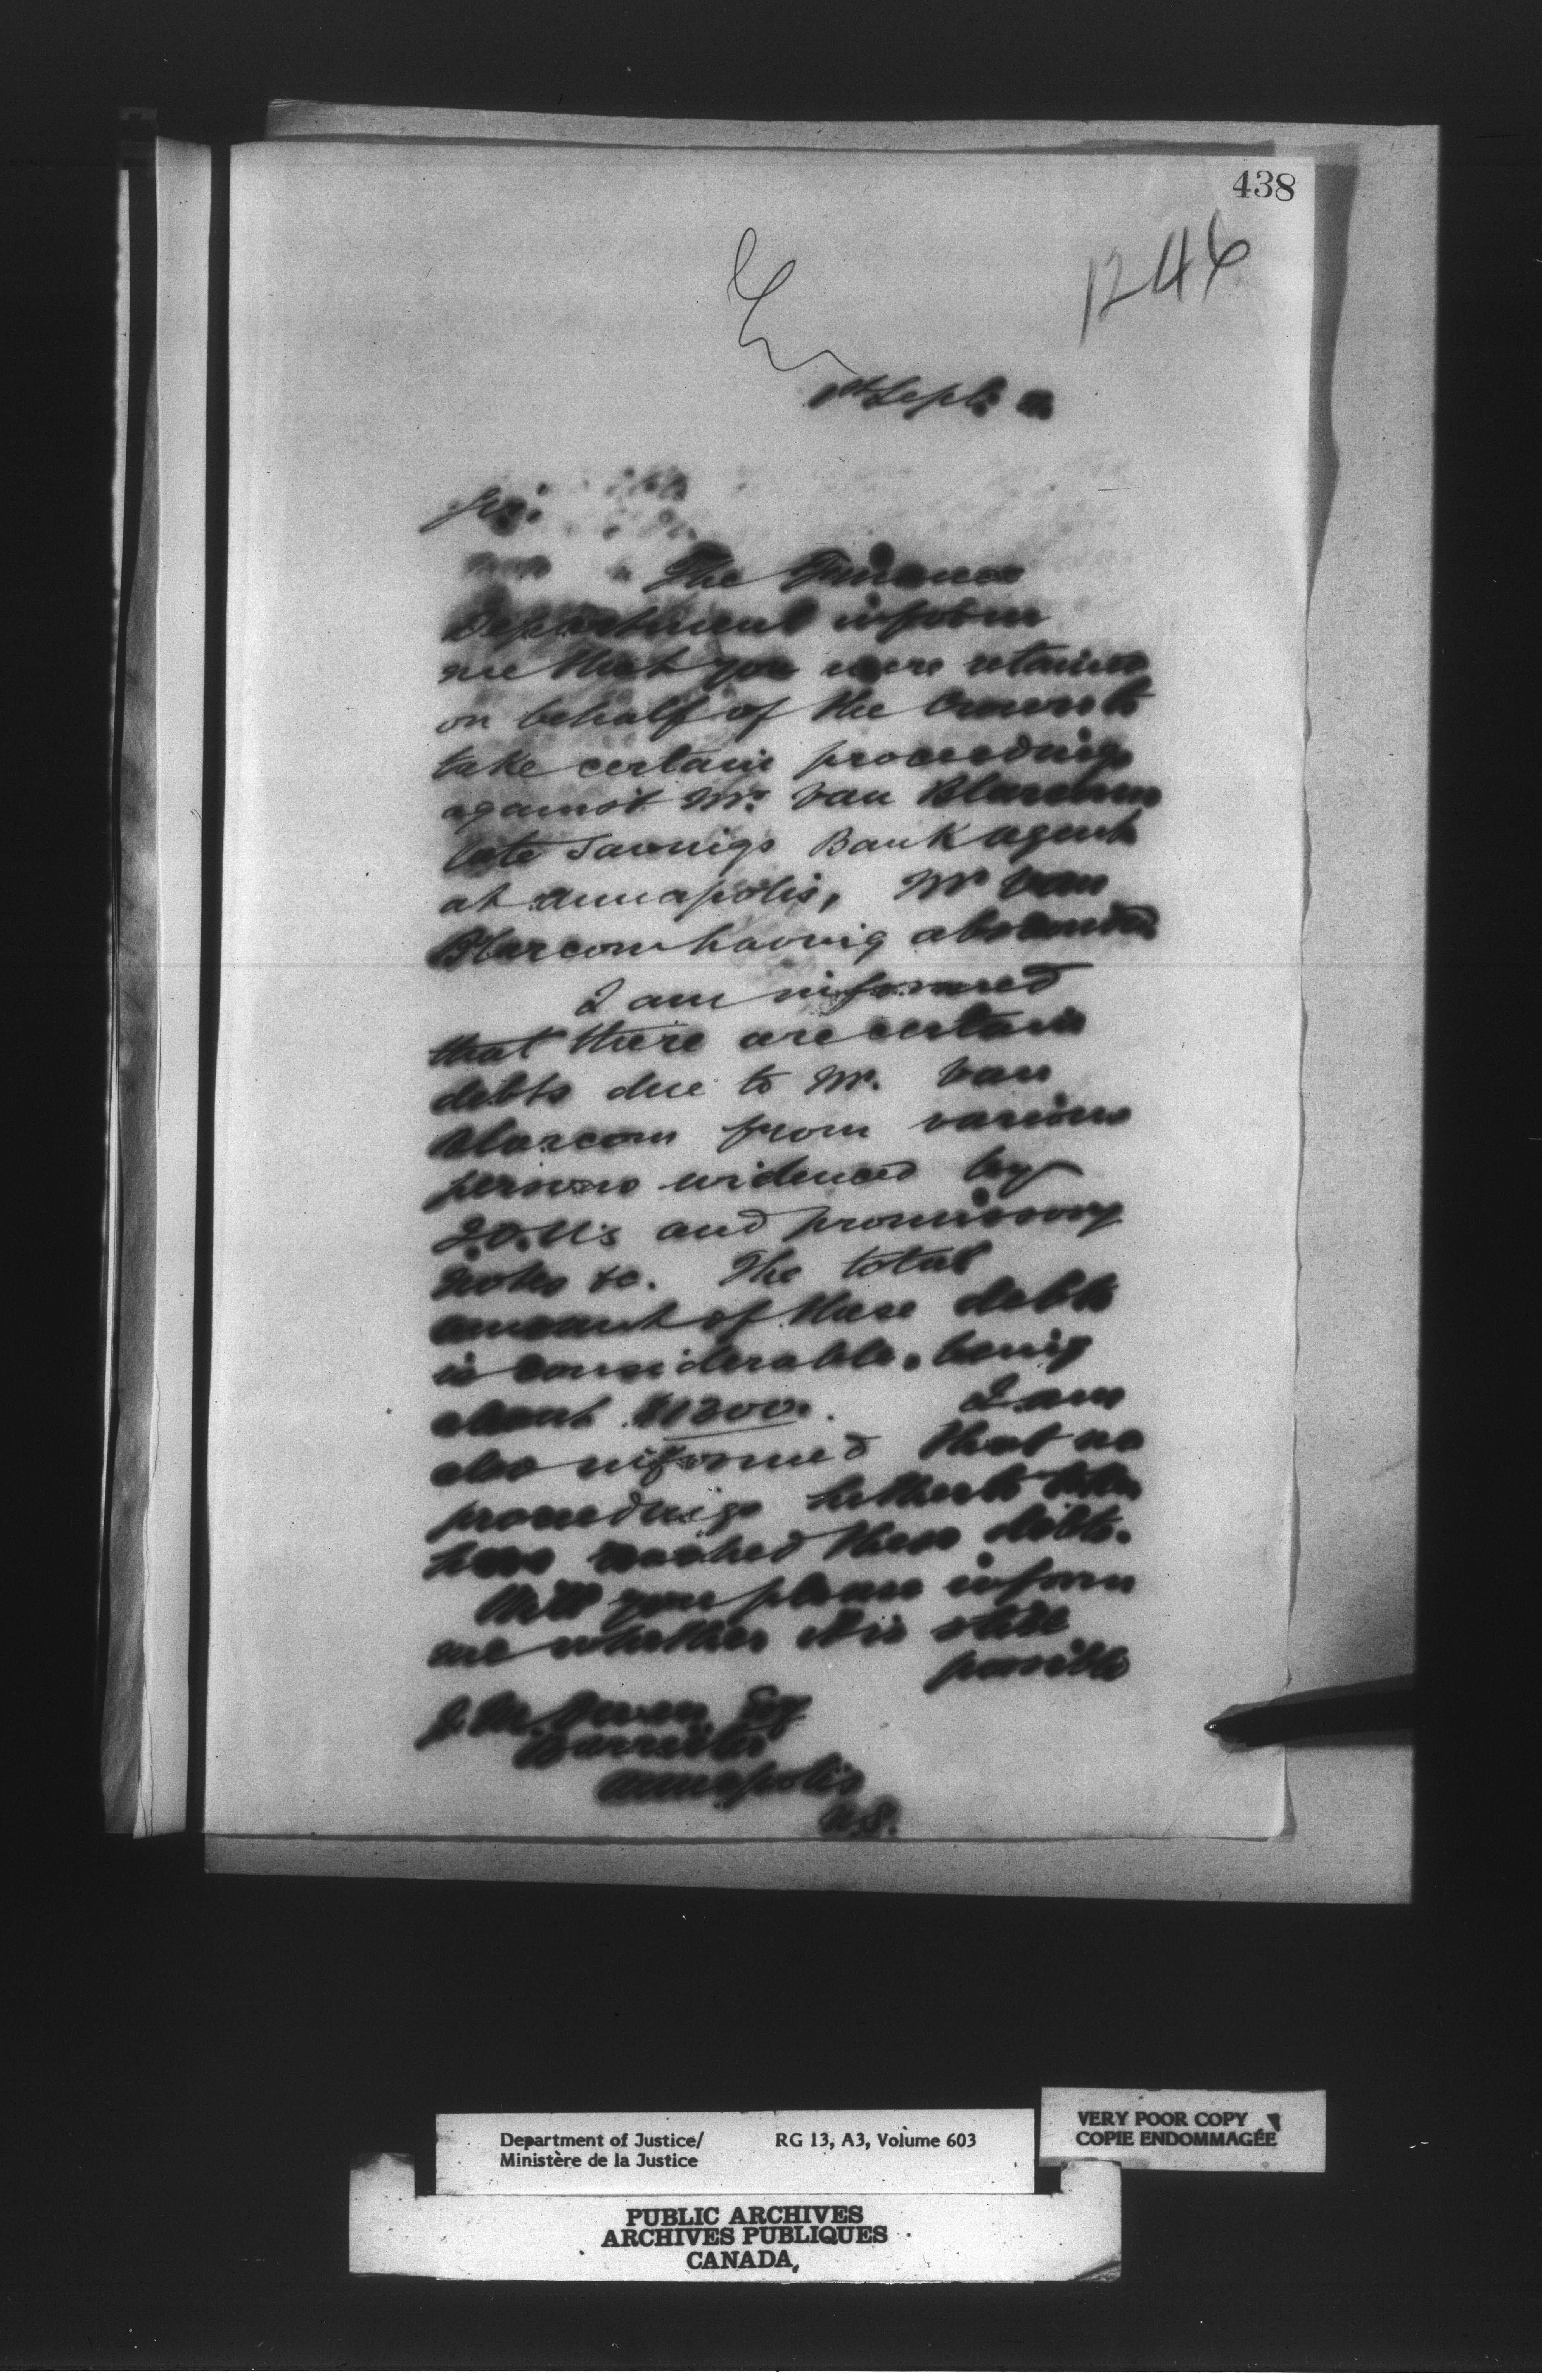 438
1246
1st Sept.
Sir:
The Finance
Department inform
me that you were retained
on behalf of the Crown to
take certain proceedings
against Mr. Van Blarcom
late Savings Bank agent
at Annapolis, Mr Van
Blarcom having absconded
I am informed
that there are certain
debts due to Mr. Van
Blarcom from various
persons evidenced by
I.O.U's and promissory
notes &c. The total
amount of these debts
is considerable, being
about $1300. I am
also informed that no
proceedings hitherto taken
have reached these debts.
Will you please inform
me whether it is still
possible
J. M. Owen Esq
Barrister
Annapolis
N.S.
Department of Justice/ RG 13, A3, Volume 603
Ministère de la Justice
VERY POOR COPY
COPIE ENDOMMAGÉE
PUBLIC ARCHIVES
ARCHIVES PUBLIQUES
CANADA